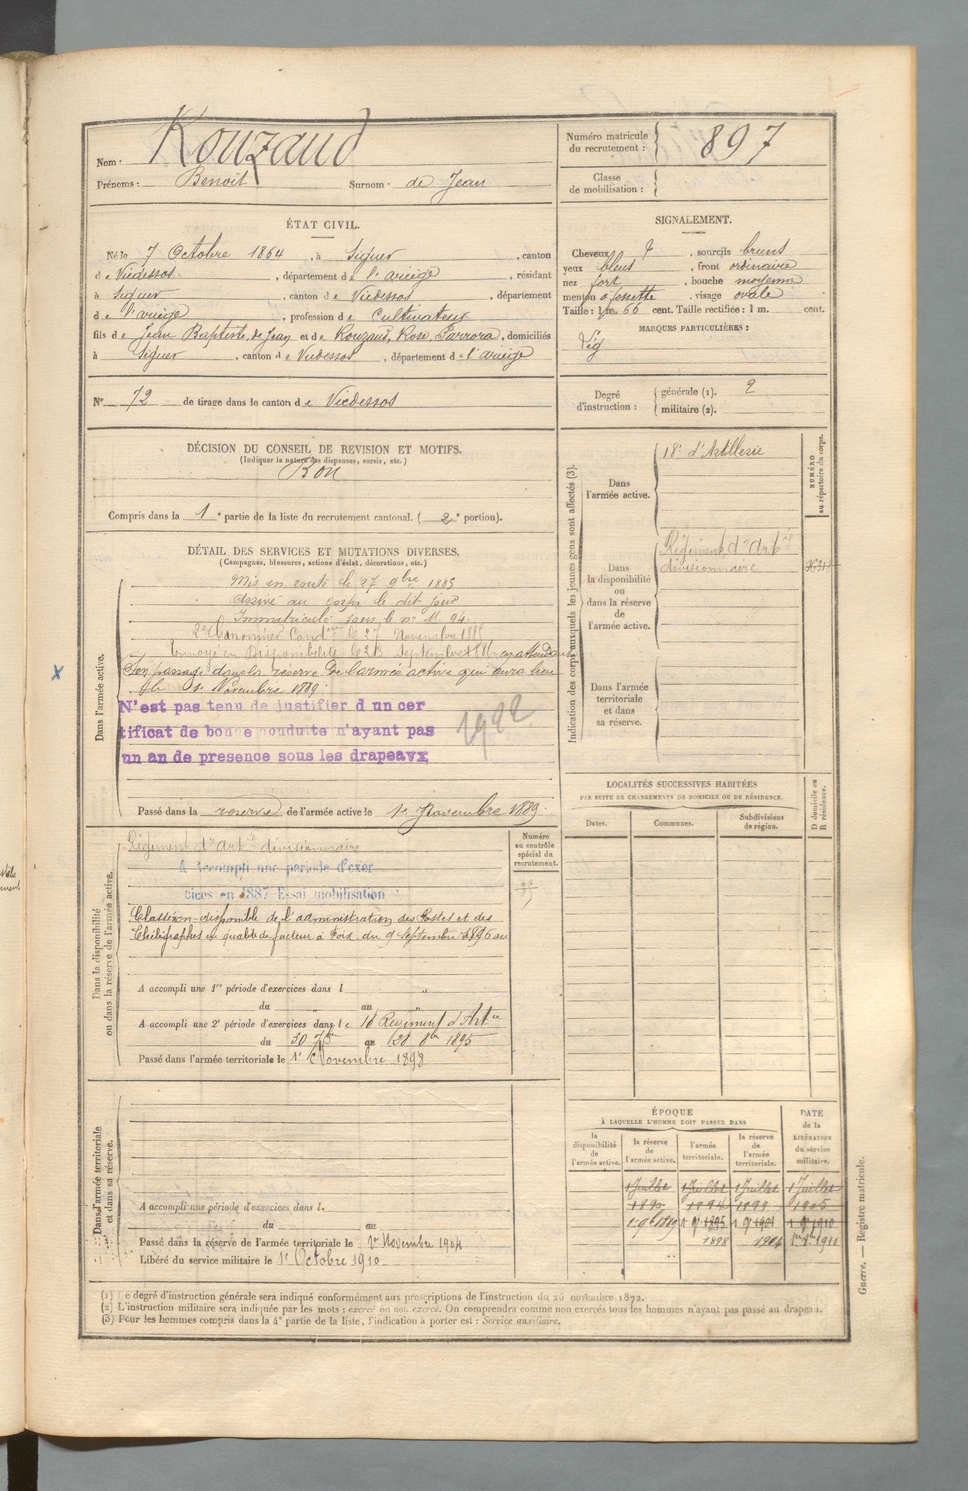 Nom : Rouzaud
Prénoms : Benoit Surnom : de Jean
Numéro matricule du recrutement : 897
Classe de mobilisation :
ÉTAT CIVIL.
Né le 7 Octobre 1864, à Siguer, canton
de Vicdessos, département de l'ariège, résidant
à Siguer, canton de Vicdessos, département
de l'ariège, profession de Cultivateur
fils de Jean Baptiste, de Jean et de Rouzaud, Rose, domiciliés
à Siguer, canton de Vicdessos, département de l'ariège
N° 72 de tirage dans le canton de Vicdessos
SIGNALEMENT.
Cheveux, sourcils bruns
yeux bleus, front ordinaire
nez fort, bouche moyenne
menton à fossette, visage ovale
Taille : 1 m. 66 cent. Taille rectifiée : 1 m. cent.
MARQUES PARTICULIÈRES :
Degré d'instruction : générale (1). 2
militaire (2).
DÉCISION DU CONSEIL DE REVISION ET MOTIFS.
(Indiquer la nature des dispenses, sursis, etc.)
Bon
Compris dans la 1e partie de la liste du recrutement cantonal. (2e portion).
DÉTAIL DES SERVICES ET MUTATIONS DIVERSES.
(Campagnes, blessures, actions d'éclat, décorations, etc.)
Dans l'armée active.
Mis en route le 27 9bre 1885
Arrivé au corps le dit jour
Immatriculé sous le n° M. 94.
2e Canonnier Condeur le 27 Novembre 1885
Envoyé en Disponibilité le Septembre en attendant
Son passage dans la réserve de l'armée active qui aura lieu
le 1er Novembre 1889.
N'est pas tenu de justifier d un cer
tificat de bonne conduite n'ayant pas
un an de presence sous les drapeaux
1922
Passé dans la reserve de l'armée active le 1er Novembre 1889.
Indication des corps auxquels les jeunes gens sont affectés (3).
NUMÉRO au répertoire du corps.
Dans l'armée active.
18e d'Artillerie
Dans la disponibilité ou dans la réserve de l'armée active.
Régiment d'Artie
divisionnaire
Dans l'armée territoriale et dans sa réserve.
LOCALITÉS SUCCESSIVES HABITÉES
PAR SUITE DE CHANGEMENTS DE DOMICILE OU DE RÉSIDENCE.
Dates. Communes. Subdivisions de région. D domicile ou R résidence.
Dans la disponibilité ou dans la réserve de l'armée active.
Numéro au contrôle spécial du recrutement.
Régiment d'Artie divisionnaire
A Accompli une période d'exer
cices en 1887 Essai mobilisation
Classé non-disponible de l'administration des Postes et des
Télégraphes en qualité de facteur à Foix du 9 Septembre 1896 au
A accompli une 1re période d'exercices dans l "
du " au "
A accompli une 2e période d'exercices dans le 18 Régiment d'Artie
du 30 7bre au 28 8bre 1895
Passé dans l'armée territoriale le 1er Novembre 1898
Dans l'armée territoriale et dans sa réserve.
A accompli une période d'exercices dans l.
du au
Passé dans la réserve de l'armée territoriale le 1er Novembre 1904
Libéré du service militaire le 1er Octobre 1910
ÉPOQUE
À LAQUELLE L'HOMME DOIT PASSER DANS
la disponibilité de l'armée active.
la réserve de l'armée active.
l'armée territoriale.
la réserve de l'armée territoriale.
DATE de la LIBÉRATION du service militaire.
1 Juillet 1 Juillet 1 Juillet 1 Juillet
1894 1899 1905
1895 1901 1910
1898 1904 1910
(1) Le degré d'instruction générale sera indiqué conformément aux prescriptions de l'instruction du 26 novembre 1872.
(2) L'instruction militaire sera indiquée par les mots : exercé ou non exercé. On comprendra comme non exercés tous les hommes n'ayant pas passé au drapeau.
(3) Pour les hommes compris dans la 4e partie de la liste, l'indication à porter est : Service auxiliaire.
Guerre. — Registre matricule.